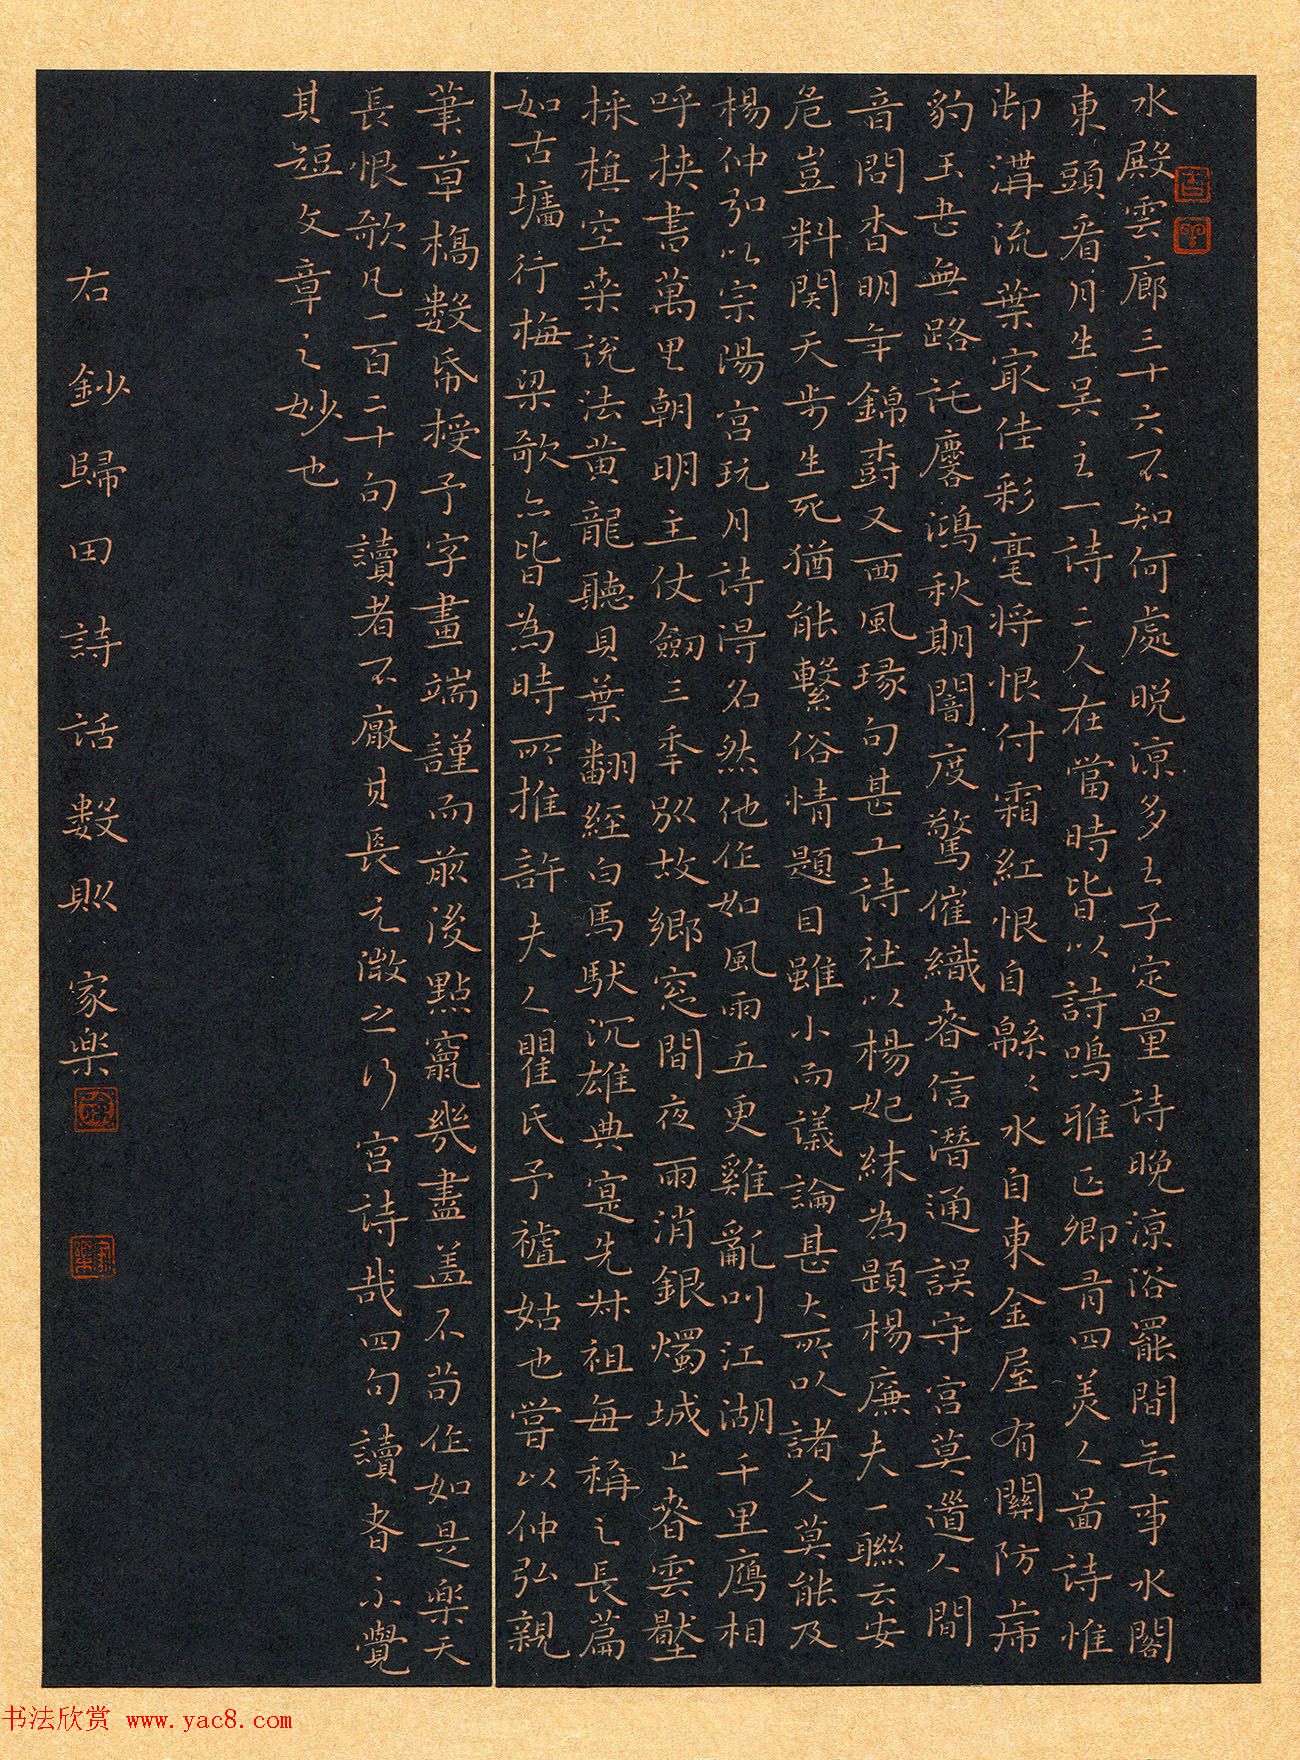 水殿雲廊三十六不知何處晚涼多王子定量詩晚涼浴罷閒無事水閣
東頭看月生吴主一詩二人在當時皆以詩鳴雅正卿有四美人啚詩惟
御溝流葉㝡佳彩毫將恨付霜紅恨自緜〻水自東金屋有關防虎
豹玉書無路託麐鴻秋期闇度驚催織春信潛通誤守宮莫道人間
音問杳明年錦樹又西風瑑句甚工詩社以楊妃襪為題楊廉夫一聯云安
危豈料関天步生死猶能繫俗情題目雖小而議論甚大所以諸人莫能及
楊仲弘以宗陽宮玩月詩得名然他作如風雨五更雞亂叫江湖千里鴈相
呼挟書萬里朝明主仗劒三季別故鄉窓間夜雨消銀燭城上春雲壓
採樵空桒說法黄龍聽貝葉翻經白馬馱沉雄典寔先叔祖每稱之長篇
如古墻行梅梁歌亦皆為時所推許夫人瞿氏予祖姑也嘗以仲弘親
筆草槗數帋授予字畫端謹而前後點竄幾盡盖不苟作如是樂天
長恨歌凡一百二十句讀者不厰其長元微之行宮詩哉四句讀者不覺
其短文章之妙也
右鈔歸田詩話數則 家樂
书法欣赏 www.yac8.com